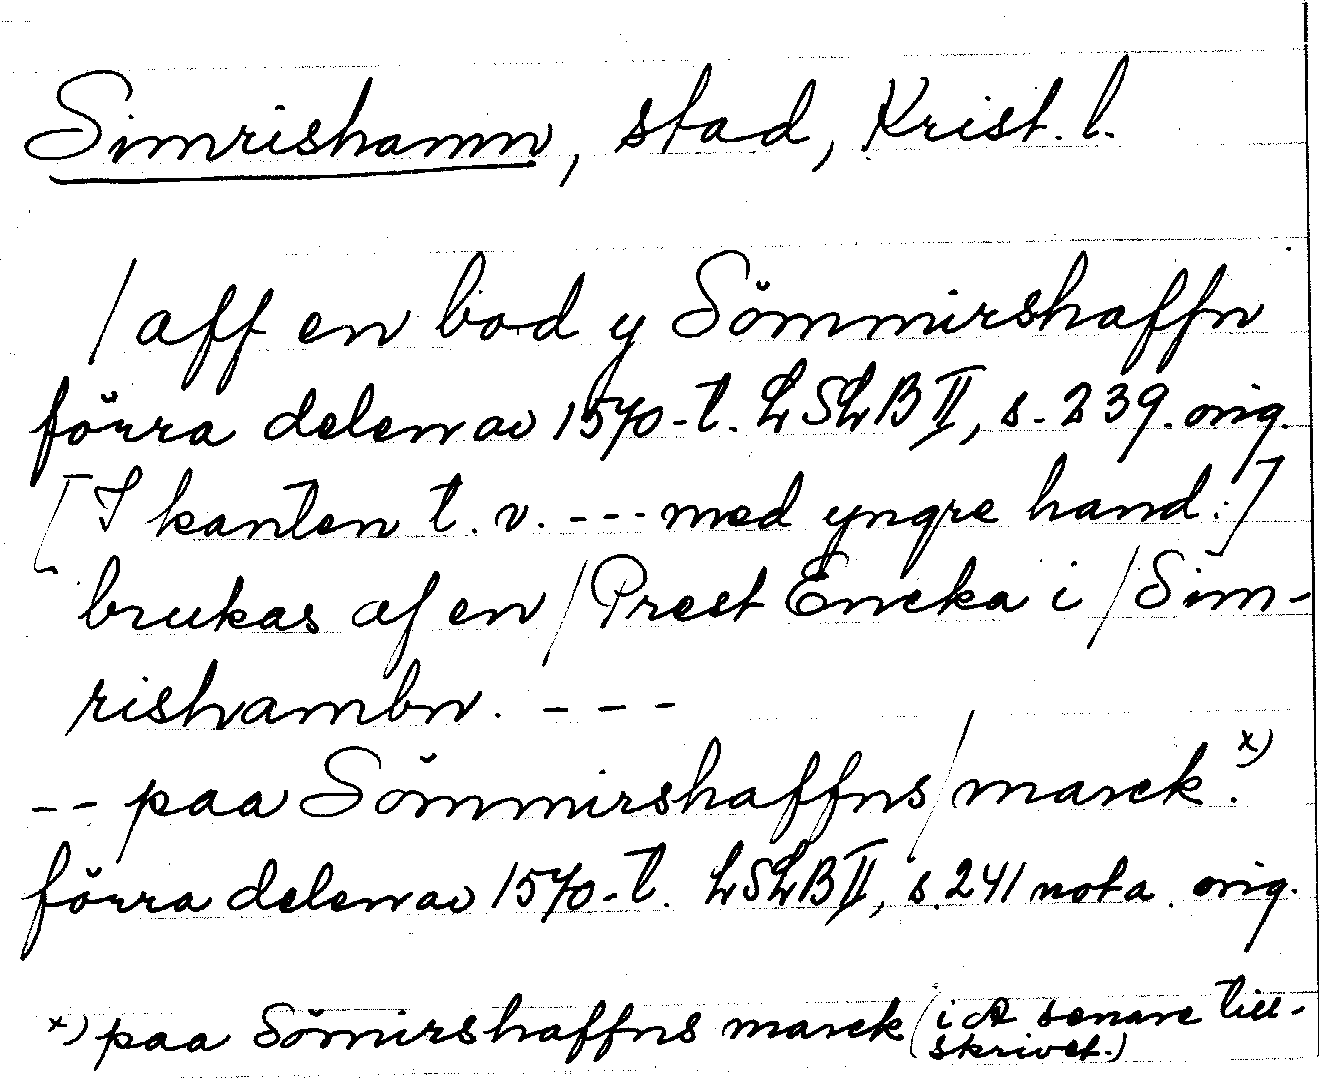 Simrishamn, stad, Krist. l.
/aff en bod y Sömmirshaffn
förra delen av 1570-t. LSLB II, s. 239. orig.
[I kanten t. v. --- med yngre hand:]
brukas af en / Prest Encka i / Sim-
rishambn. ---
-- paa Sömmirshaffns / marck. x)
förra delen av 1570-t. LSLB II, s. 241 nota. orig.
x) paa Sömirshaffns marck (i A senare till-
skrivet.)